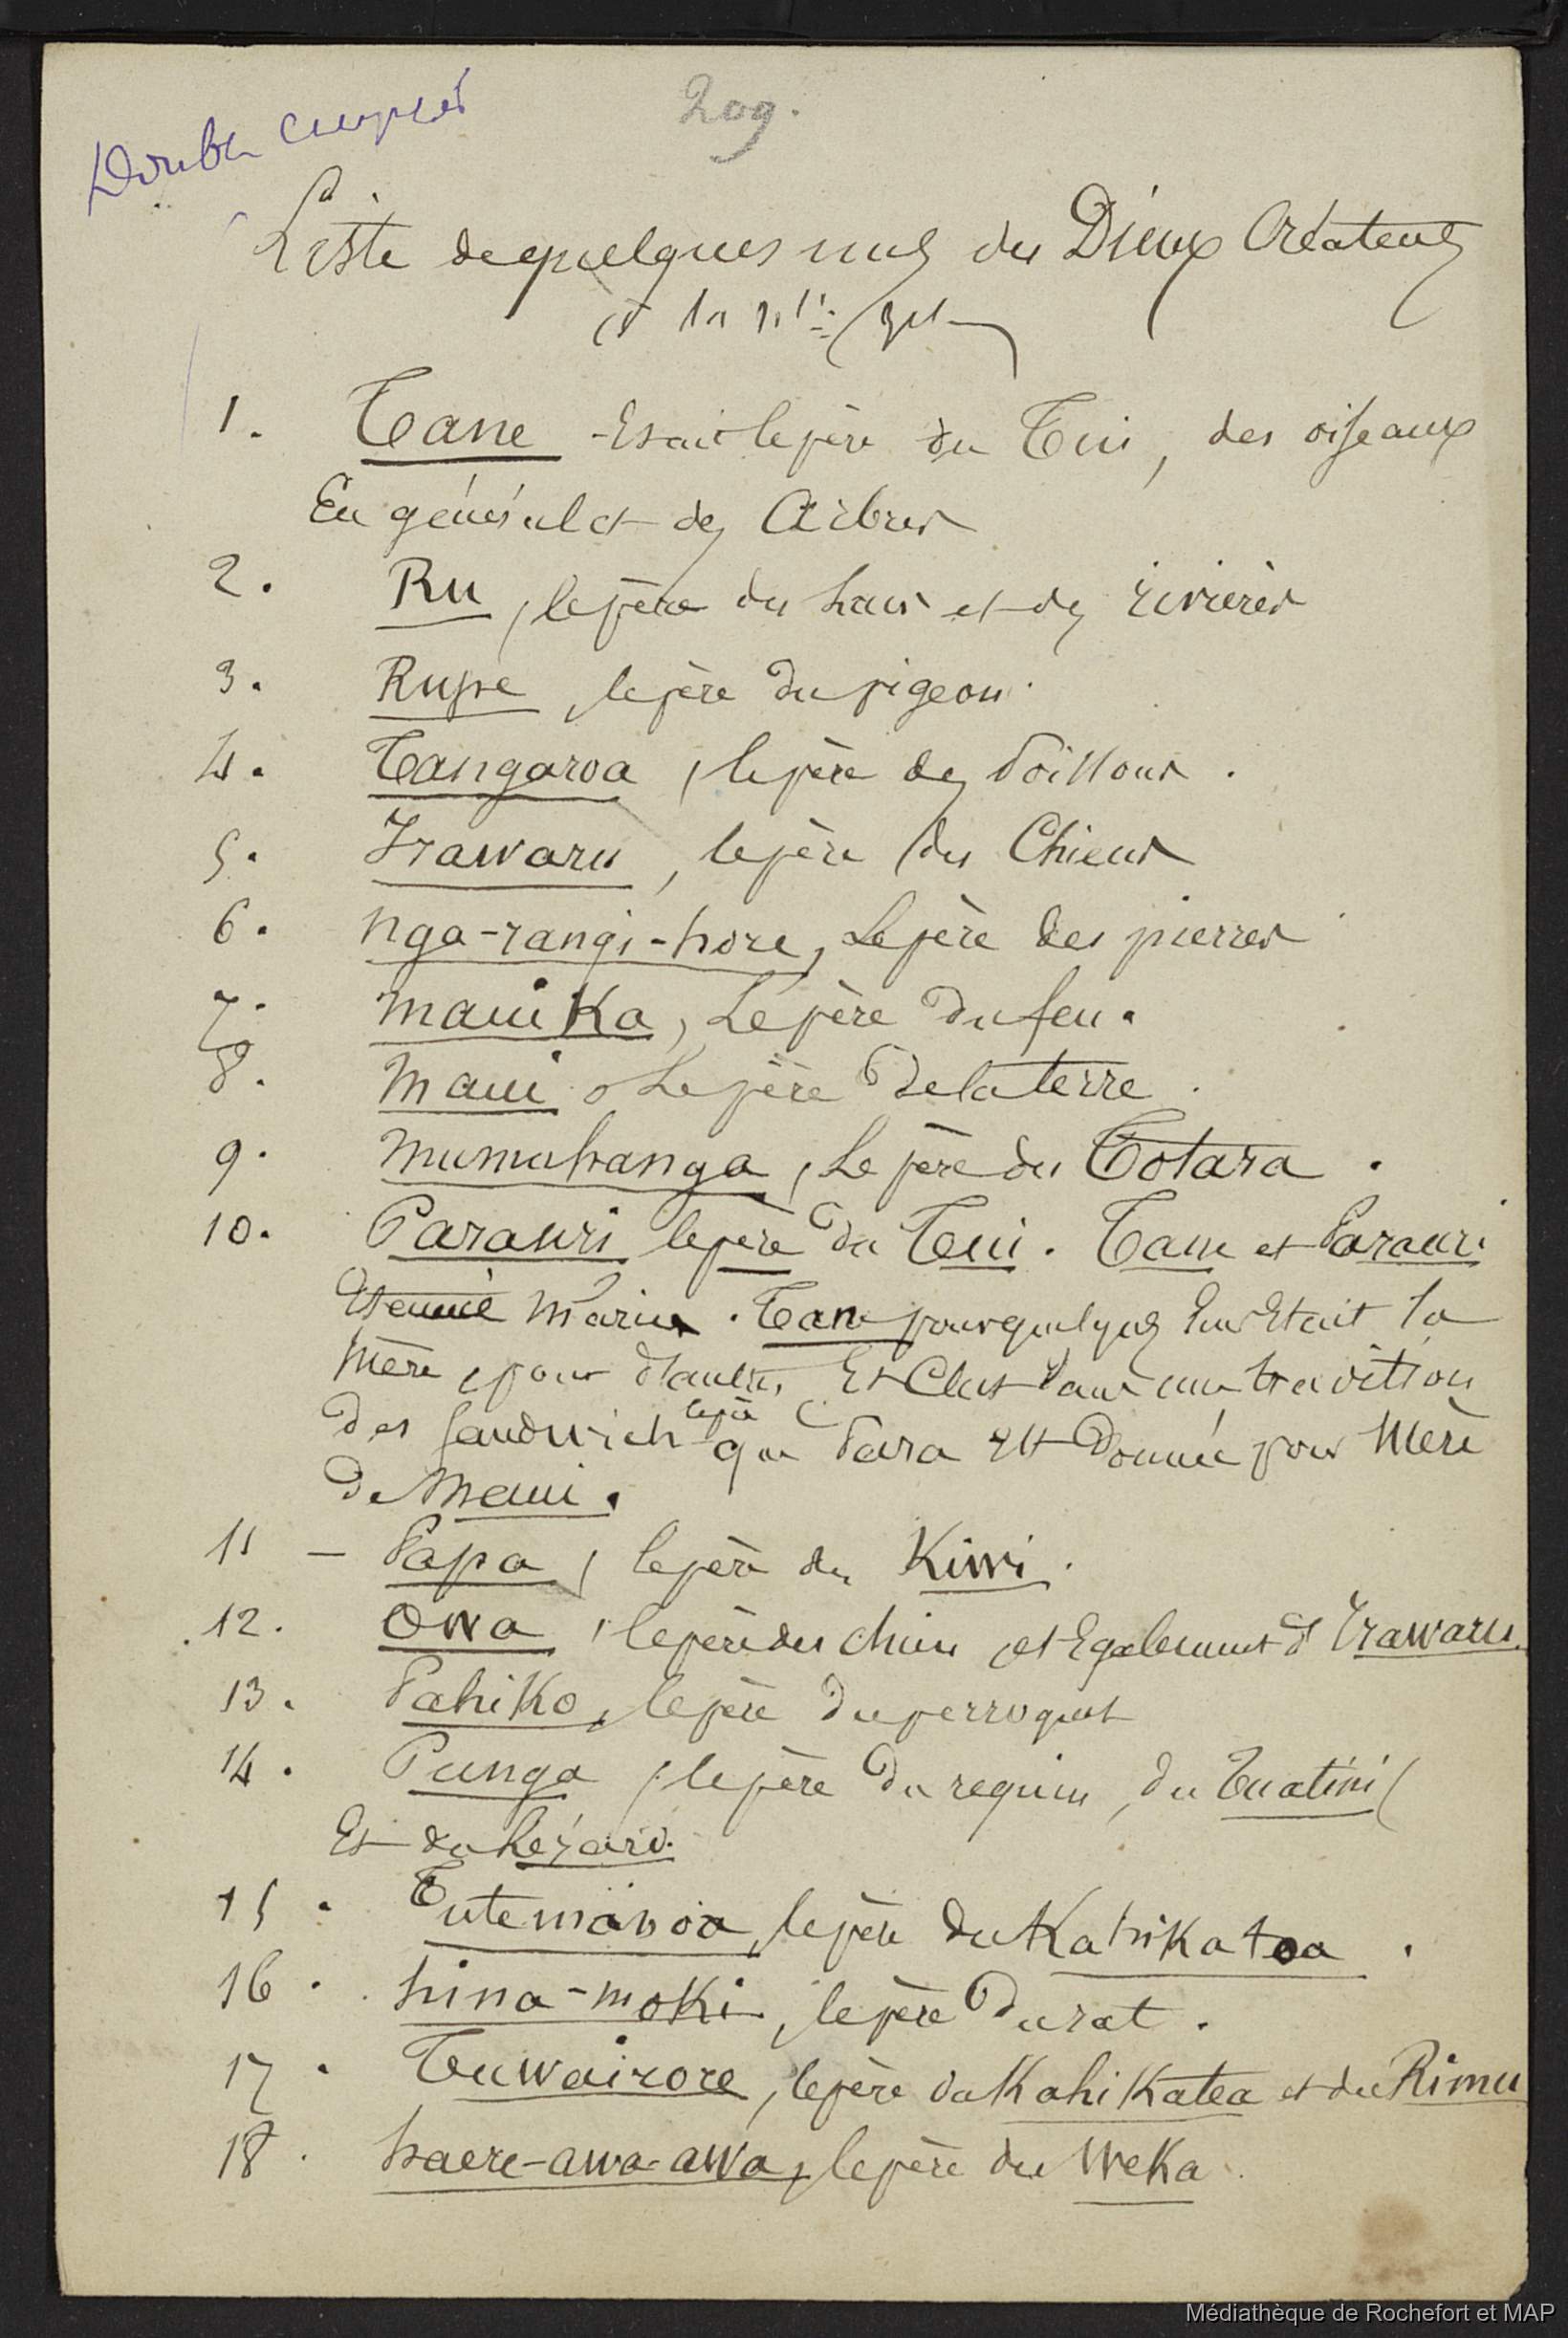 Double
209.
Liste de quelques uns des Dieux Créateurs
à la Nlle Zel
1. Tane Etait le père du Tui, des oiseaux
En général et des Arbres
2. Ru, le père des Lacs et des rivières
3. Rupe, le père du pigeon.
4. Tangaroa, le père des Poissons.
5. Irawaru, le père des Chiens
6. Nga-rangi-hore, Le père des pierres
7. Maui Ka, Le père du feu.
8. Maui, Le père de la terre.
9. Mumuhanga, Le père du Totara.
10. Parauri le père du Tui. Tane et Parauri
Etaient Mariés. Tane pour quelques Uns Etait la
Mère, pour d'autres le père. Et C'est dans une tradition
des Sandwich que Para est Donnée pour Mère
de Maui.
11 — Papa, le père du Kiwi.
12. Owa, le père des chiens et Egalement d'Irawaru.
13. Pahiko, le père du perroquet
14. Punga, le père du requin, du Tuatini,
Et du Lézard.
15. Tutemanoa, le père du Kahikatoa.
16. hina-moki, le père du rat.
17. Tuwairore, le père du Kahikatea et du Rimu
18. haere-awa-awa, le père du Weka.
Médiathèque de Rochefort et MAP